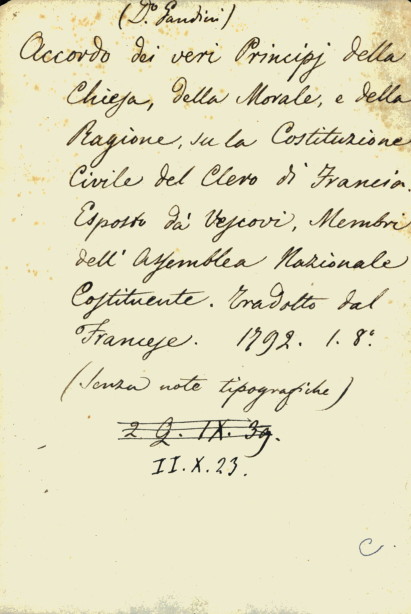 (D.º Gandini)
Accordo dei veri Principj della
Chiesa, della Morale, e della
Ragione, su la Costituzione
Civile del Clero di Francia.
Esposto da' Vescovi, Membri
dell' Assemblea Nazionale
Costituente. Tradotto dal
Francese. 1792. 1. 8.º
(Senza note tipografiche)
2 Q. IX. 39.
II. X. 23.
C.